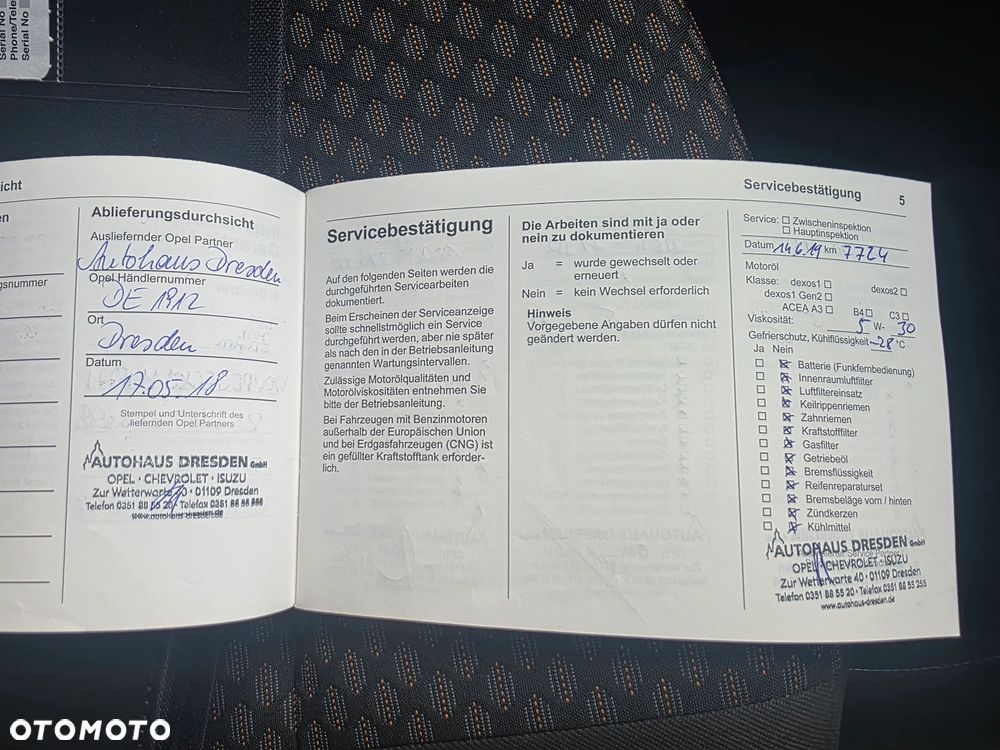 Serial No
Phone/Tele
Serial No
icht
en
gsnummer
Ablieferungsdurchsicht
Ausliefernder Opel Partner
Autohaus Dresden
Opel Händlernummer
DE 1912
Ort
Dresden
Datum
17.05.18
Stempel und Unterschrift des
liefernden Opel Partners
AUTOHAUS DRESDEN GmbH
OPEL · CHEVROLET · ISUZU
Zur Wetterwarte 40 · 01109 Dresden
Telefon 0351 88 55 20 · Telefax 0351 88 55 255
www.autohaus-dresden.de
Servicebestätigung
Auf den folgenden Seiten werden die
durchgeführten Servicearbeiten
dokumentiert.
Beim Erscheinen der Serviceanzeige
sollte schnellstmöglich ein Service
durchgeführt werden, aber nie später
als nach den in der Betriebsanleitung
genannten Wartungsintervallen.
Zulässige Motorölqualitäten und
Motorölviskositäten entnehmen Sie
bitte der Betriebsanleitung.
Bei Fahrzeugen mit Benzinmotoren
außerhalb der Europäischen Union
und bei Erdgasfahrzeugen (CNG) ist
ein gefüllter Kraftstofftank erforder-
lich.
Die Arbeiten sind mit ja oder
nein zu dokumentieren
Ja = wurde gewechselt oder
erneuert
Nein = kein Wechsel erforderlich
Hinweis
Vorgegebene Angaben dürfen nicht
geändert werden.
Servicebestätigung 5
Service: Zwischeninspektion
Hauptinspektion
Datum 14.6.19 km 7724
Motoröl
Klasse: dexos1 dexos2
dexos1 Gen2
ACEA A3 B4 C3
Viskosität: 5 W- 30
Gefrierschutz, Kühlflüssigkeit -28 °C
Ja Nein
Batterie (Funkfernbedienung)
Innenraumluftfilter
Luftfiltereinsatz
Keilrippenriemen
Zahnriemen
Kraftstofffilter
Gasfilter
Getriebeöl
Bremsflüssigkeit
Reifenreparaturset
Bremsbeläge vorn / hinten
Zündkerzen
Kühlmittel
AUTOHAUS DRESDEN GmbH
OPEL · CHEVROLET · ISUZU
Zur Wetterwarte 40 · 01109 Dresden
Telefon 0351 88 55 20 · Telefax 0351 88 55 255
www.autohaus-dresden.de
OTOMOTO